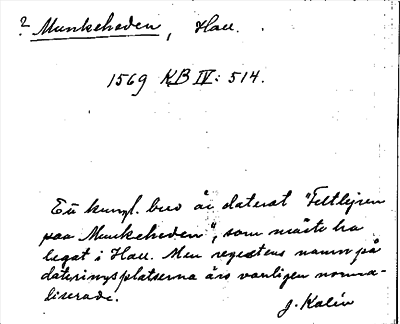 ? Munkeheden, Hall.
1569 KB IV: 514.
Ett kungl. brev är daterat "Feltlejren
paa Munkeheden", som måste ha
legat i Hall. Men registens namn på
dateringsplatserna äro vanligen norma-
liserade.
J. Kalén